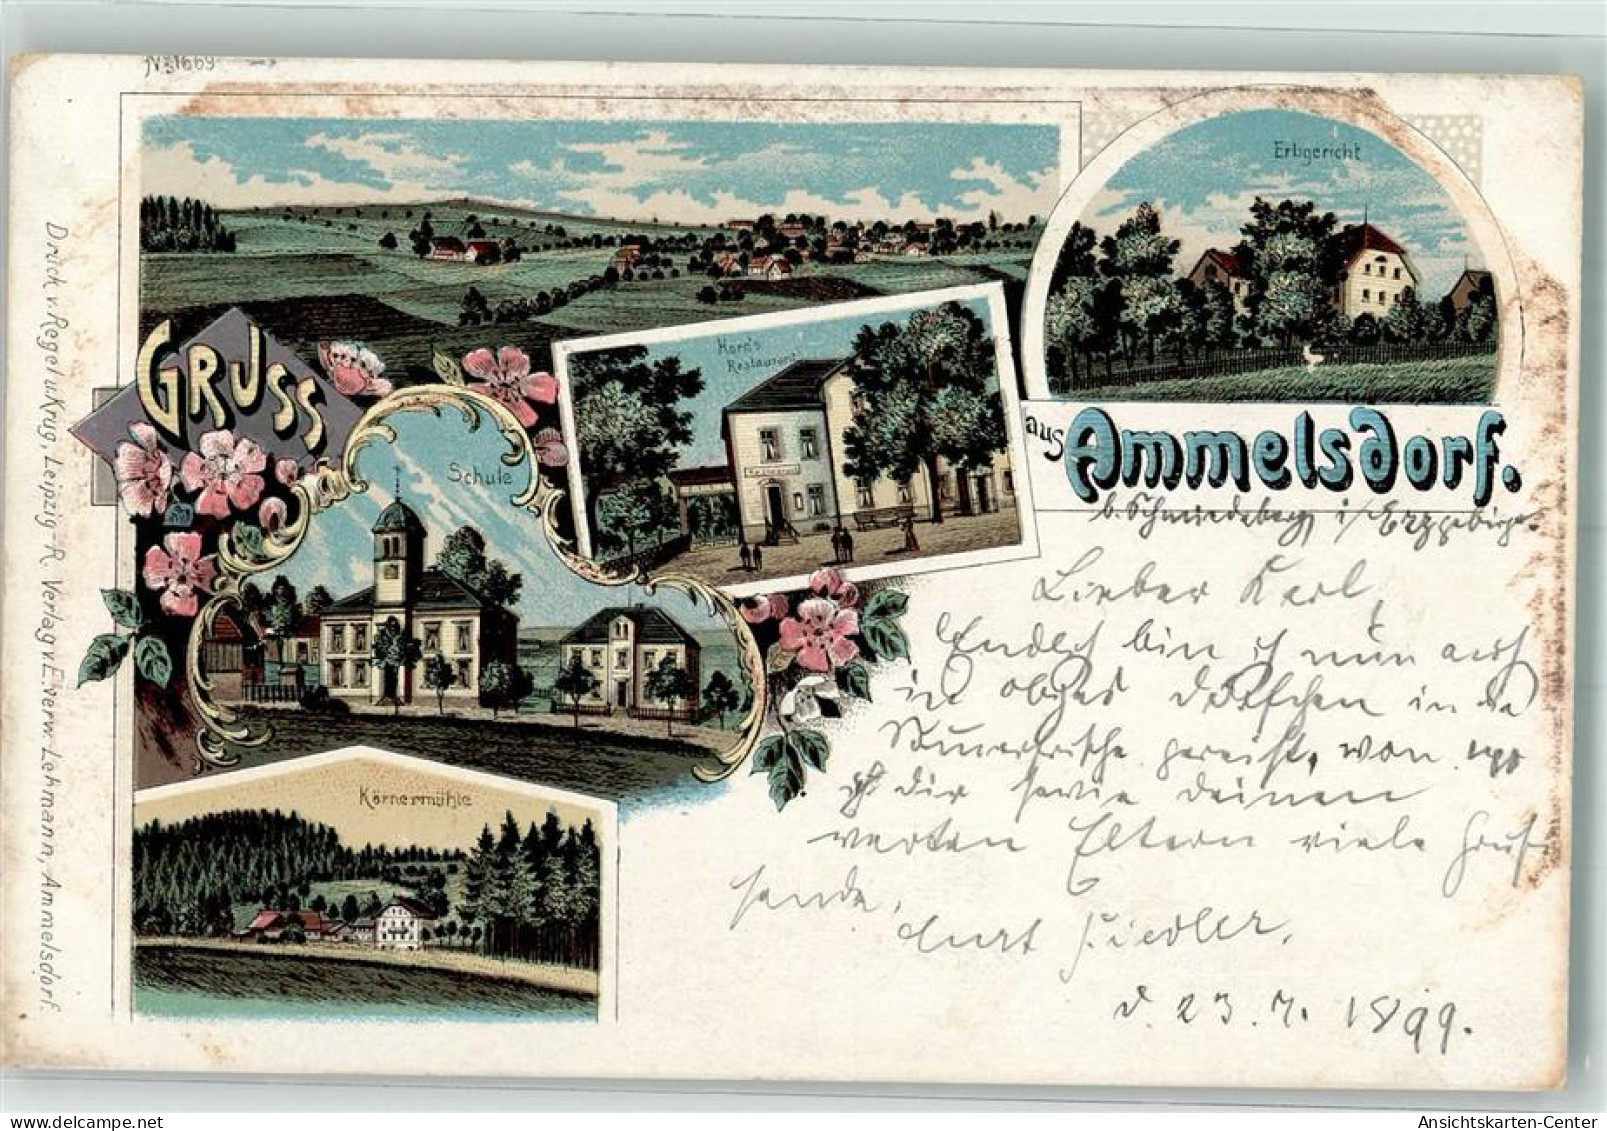 No 1669
Erbgericht
GRUSS
Restaurant
aus Ammelsdorf.
Schule
b. Schmiedeberg i/Erzgebirge
Lieber Karl,
Endlich bin ich nun auch
in obges Dörfchen in die
Somerfrische gereist, von wo
ich dir sowie deinen
werten Eltern viele Grüße
sende.
Curt Fiedler.
d. 23. 7. 1899.
Körnermühle
Druck v. Regel u. Krug, Leipzig-R. Verlag v. E. verw. Lehmann, Ammelsdorf.
Ansichtskarten-Center